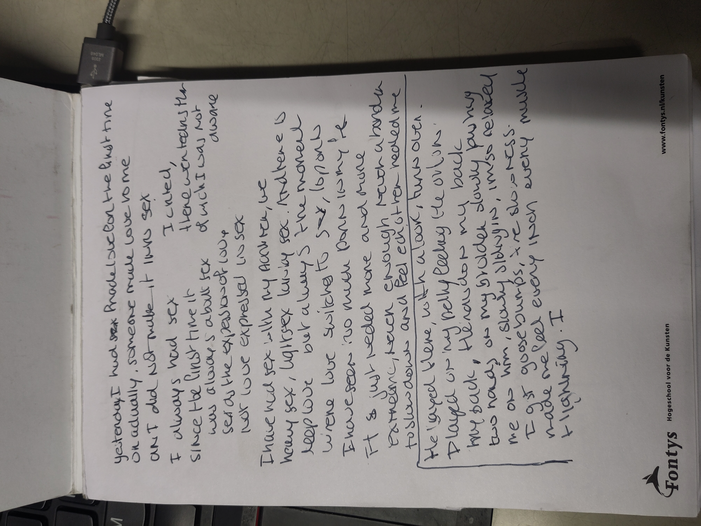 yesterday I had sex I made love for the first time
or actually, someone made love to me
and I did not make it into sex
I always had sex
since the first time it
was always about sex
sex as the expression of love
not love expressed in sex
I cried,
there were tears
of which I was not
aware
I have had sex with my partner, we
heavy sex, light sex, loving sex. And there is
deep love but always the moment
where love switches to sex, loponto
I have seen too much porn in my life
It just needed more and more
extreme, never enough, never a border
to slow down and feel each other
He layed there, with a look, turn over.
I layed on my belly feeling the oil on
my back, He
two hands on my shoulder slowly pushing
me on him, slowly sliding in, im so relaxed
I got goosebumps, the slowness
made me feel every inch every muscle
tightning. I
Fontys Hogeschool voor de Kunsten
www.fontys.nl/kunsten